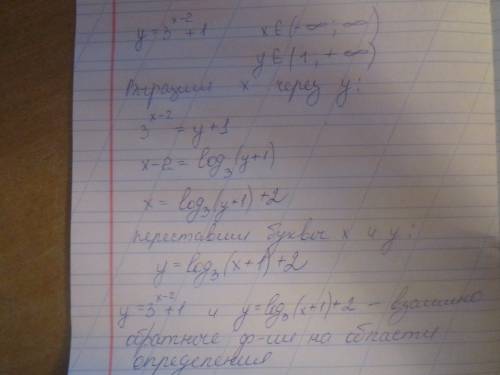 y=3^{x-2}+1 x∈(-∞;∞)
y∈(1,+∞)
Выразим x через y:
3^{x-2}=y+1
x-2=log₃(y+1)
x=log₃(y+1)+2
переставим буквы x и y:
y=log₃(x+1)+2
y=3^{x-2}+1 и y=log₃(x+1)+2 – взаимно
обратные ф-ии на области
определения